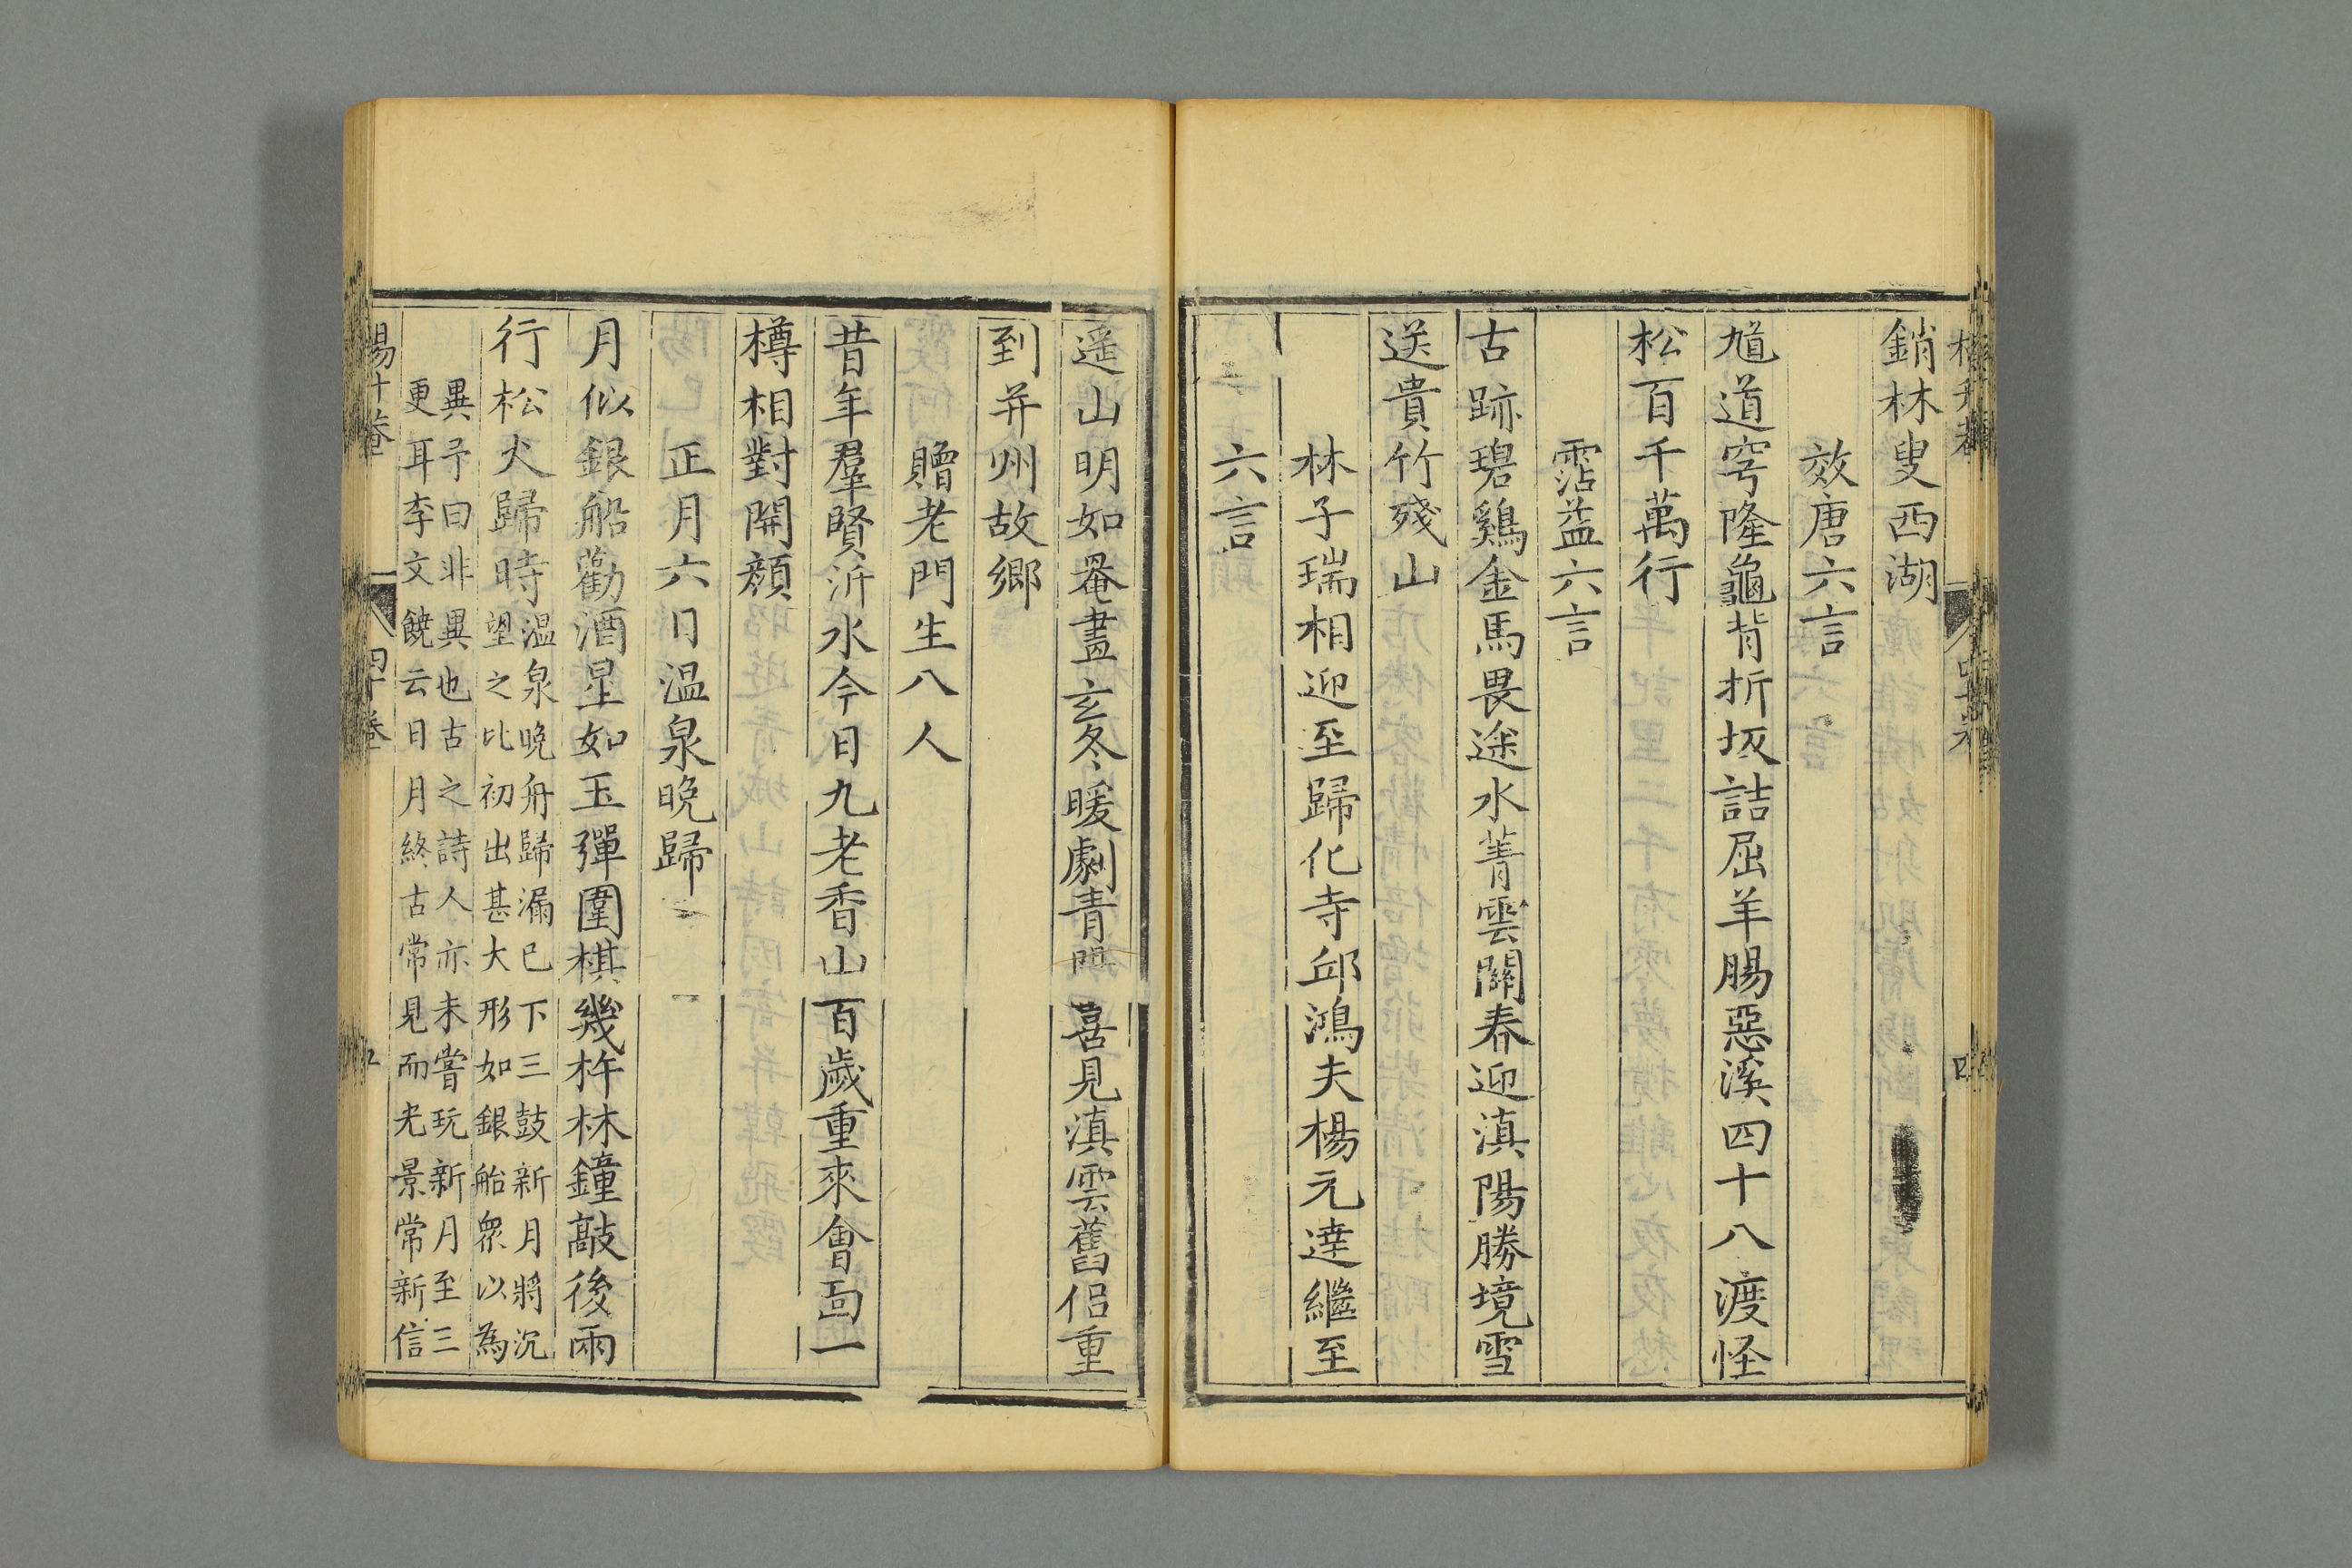 銷林叟西湖
效唐六言
馗道穹隆龜背折坂詰屈羊腸惡溪四十八渡怪
松百千萬行
霑益六言
古跡碧鷄金馬畏途水菁雲關春迎滇陽勝境雪
送貴竹殘山
林子瑞相迎至歸化寺邱鴻夫楊元達繼至
六言
遥山明如罨畫玄冬暖劇青陽喜見滇雲舊侣重
到并州故鄉
贈老門生八人
昔年羣賢沂水今日九老香山百歲重來會面一
樽相對開顔
正月六日温泉晚歸
月似銀船勸酒星如玉彈圍棋幾杵林鐘敲後兩
行松火歸時
温泉晚舟歸漏已下三鼓新月將沉
望之比初出甚大形如銀船衆以為
異予曰非異也古之詩人亦未嘗玩新月至三
更耳李文饒云日月終古常見而光景常新信